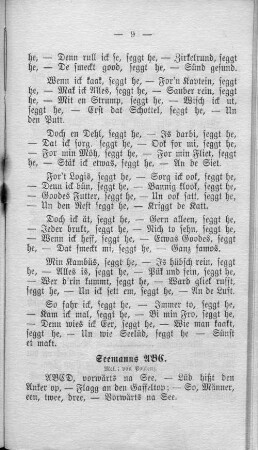 — 9 —
he, — Denn rull ick se, seggt he, — Zirkelrund, seggt
he, — De smeckt good, seggt he, — Sünd gesund.
Wenn ick kaak, seggt he, — For'n Kaptein, seggt
he, — Mak ick Alles, seggt he, — Sauber rein, seggt
he, — Mit en Strump, seggt he, — Wisch ick ut,
seggt he, — Erst dat Schottel, seggt he, — Un
den Putt.
Doch en Dehl, seggt he, — Is darbi, seggt he,
— Dat ick sorg, seggt he, — Ook for mi, seggt he,
— For min Möh, seggt he, — For min Fliet, seggt
he, — Stük ick etwas, seggt he, — An de Siet.
For't Logis, seggt he, — Sorg ick ook, seggt he,
— Denn ick bün, seggt he, — Bannig klook, seggt he,
— Goodes Futter, seggt he, — Un ook satt, seggt he,
— Un den Rest seggt he, — Kriggt de Katt.
Doch ick ät, seggt he, — Gern alleen, seggt he,
— Jeder brukt, seggt he, — Nich to sehn, seggt he,
— Wenn ick heff, seggt he, — Etwas Goodes, seggt
he, — Dat smeckt mi, seggt he, — Ganz famos.
Min Kambüs, seggt he, — Is hübsch rein, seggt
he, — Alles is, seggt he, — Pük und fein, seggt he,
— Wer d'rin kummt, seggt he, — Ward glick rüffelt,
seggt he, — Un ick sett em, seggt he, — An de Luft.
So fahr ick, seggt he, — Immer to, seggt he,
— Kam ick mal, seggt he, — Bi min Fro, seggt he,
— Denn wies ick Eer, seggt he, — Wie man kaakt,
seggt he, — Un wie Seelüd, seggt he, — Sünst
et makt.
Seemanns ABC.
Mel.: von
ABCD, vorwärts na See. — Lüd hißt den
Anker op, — Flagg an den Gaffeltop; — So, Männer,
een, twee, dree, — Vorwärts na See.